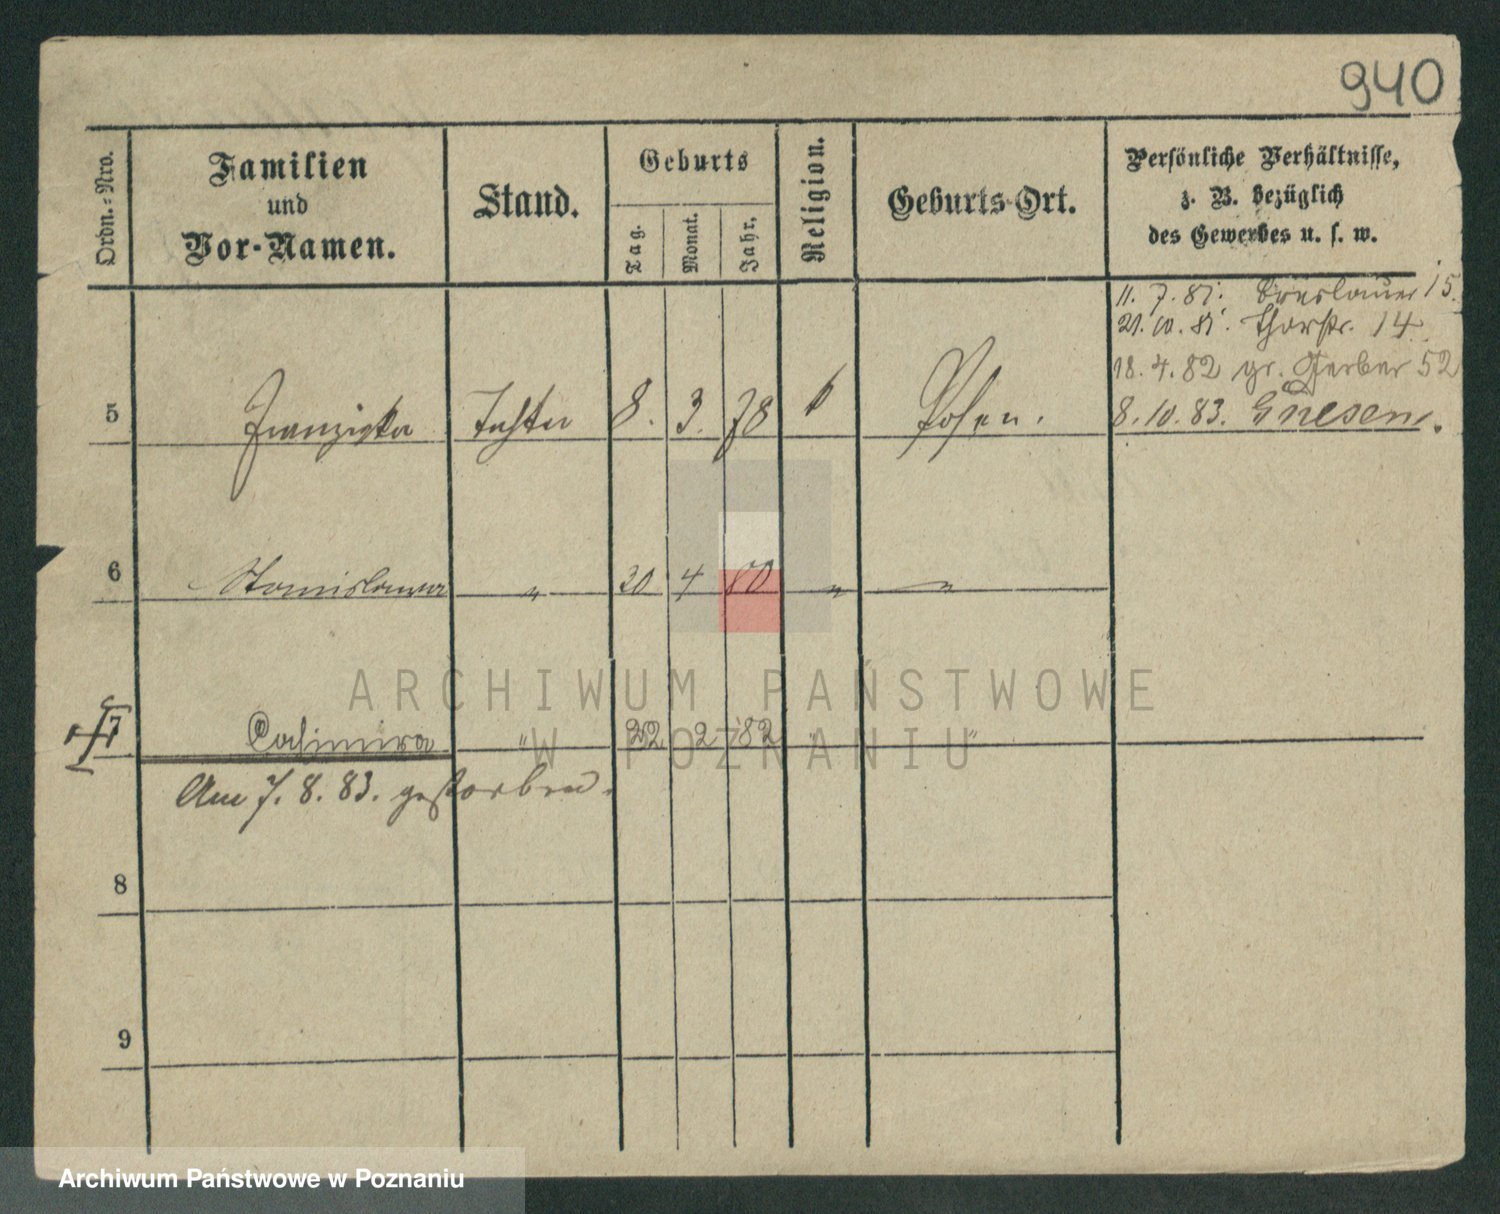 940
Ordn.-Nro.
Familien
und
Vor-Namen.
Stand.
Geburts
Tag.
Monat.
Jahr.
Religion.
Geburts-Ort.
Persönliche Verhältnisse,
z. B. bezüglich
des Gewerbes u. s. w.
11. 7. 81. Breslauer 15.
21. 10. 81. Thorstr. 14
18. 4. 82 gr. Gerber 52
8. 10. 83. Gnesen.
5 Franziska Tochter 8. 3. 78 k Posen.
6 Stanislawa " 20 4 80 " "
7 Casimira " 22 2 82 " "
Am 7. 8. 83. gestorben.
8
9
ARCHIWUM PAŃSTWOWE
W POZNANIU
Archiwum Państwowe w Poznaniu